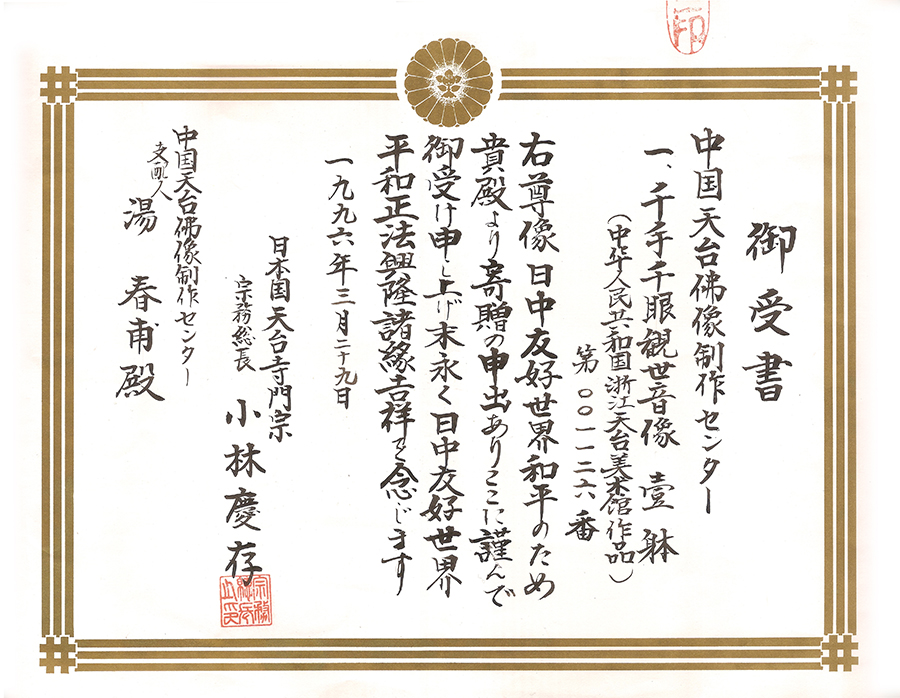 御受書
中国天台佛像制作センター
一、千手千眼観世音像 壹躰
(中华人民共和国浙江天台美术馆作品)
第〇〇一一二六番
右尊像日中友好世界和平のため
貴殿より寄贈の申出ありここに謹んで
御受け申し上げ末永く日中友好世界
平和正法興隆諸縁吉祥を念じます
一九九六年三月二十九日
日本国天台寺門宗
宗務総長 小林慶存
宗務総長之印
中国天台佛像制作センター
支配人 湯春甫殿
印